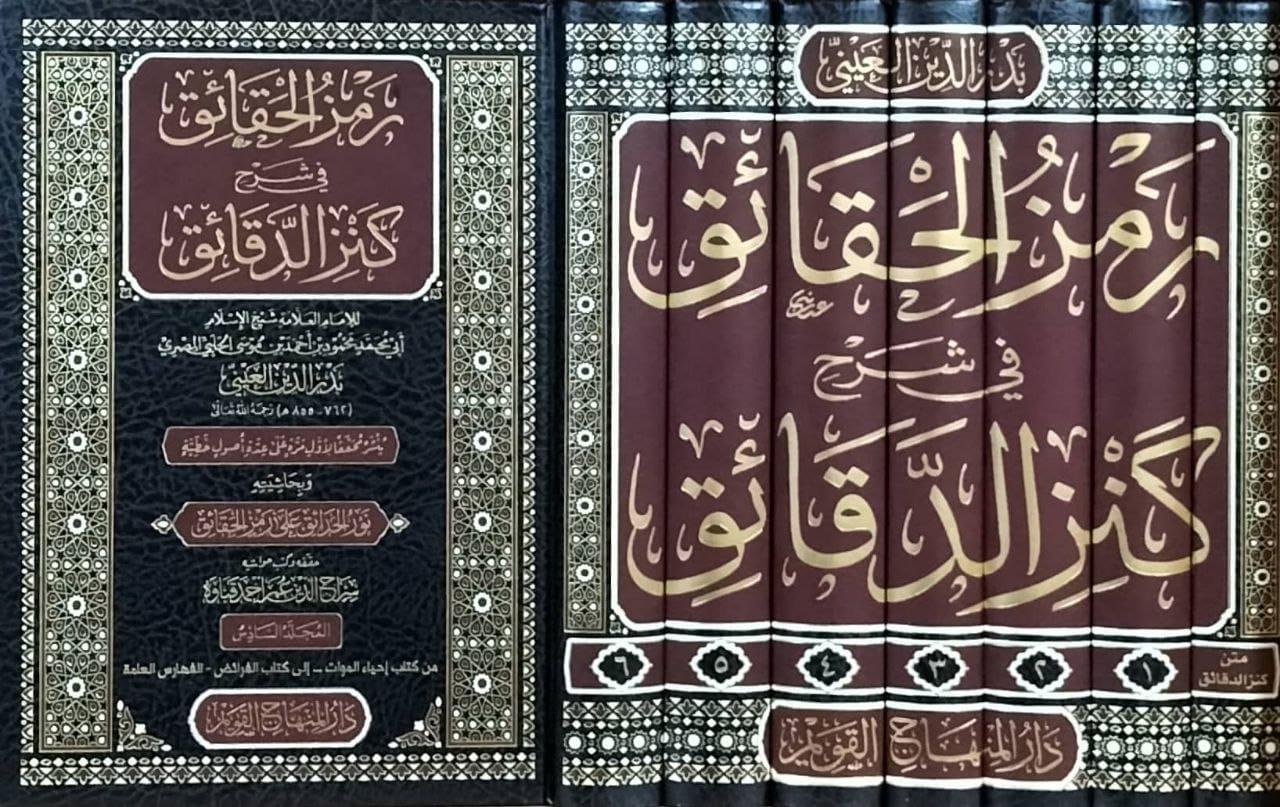 رَمْزُ الحَقَائِقِ
فِي شَرْحِ
كَنْزِ الدَّقَائِقِ
للإمام العلامة شيخ الإسلام
أبي محمد محمود بن أحمد بن موسى الحلبي المصري
بدر الدين العيني
(٧٦٢ - ٨٥٥ هـ) رحمه الله تعالى
ينشر محققا لأول مرة على عدة أصول خطية
وبحاشيته
نور الحدائق على رمز الحقائق
حققه وكتب حواشيه
سراج الدين عمر أحمد قناوة
المجلد السادس
من كتاب إحياء الموات ... إلى كتاب الفرائض - الفهارس العلمة
دار المنهاج القويم
بدر الدين العيني
رَمْزُ الْحَقَائِقِ
فِي شَرْحِ
كَنْزِ الدَّقَائِقِ
متن كنز الدقائق ١ ٢ ٣ ٤ ٥ ٦
دار المنهاج القويم